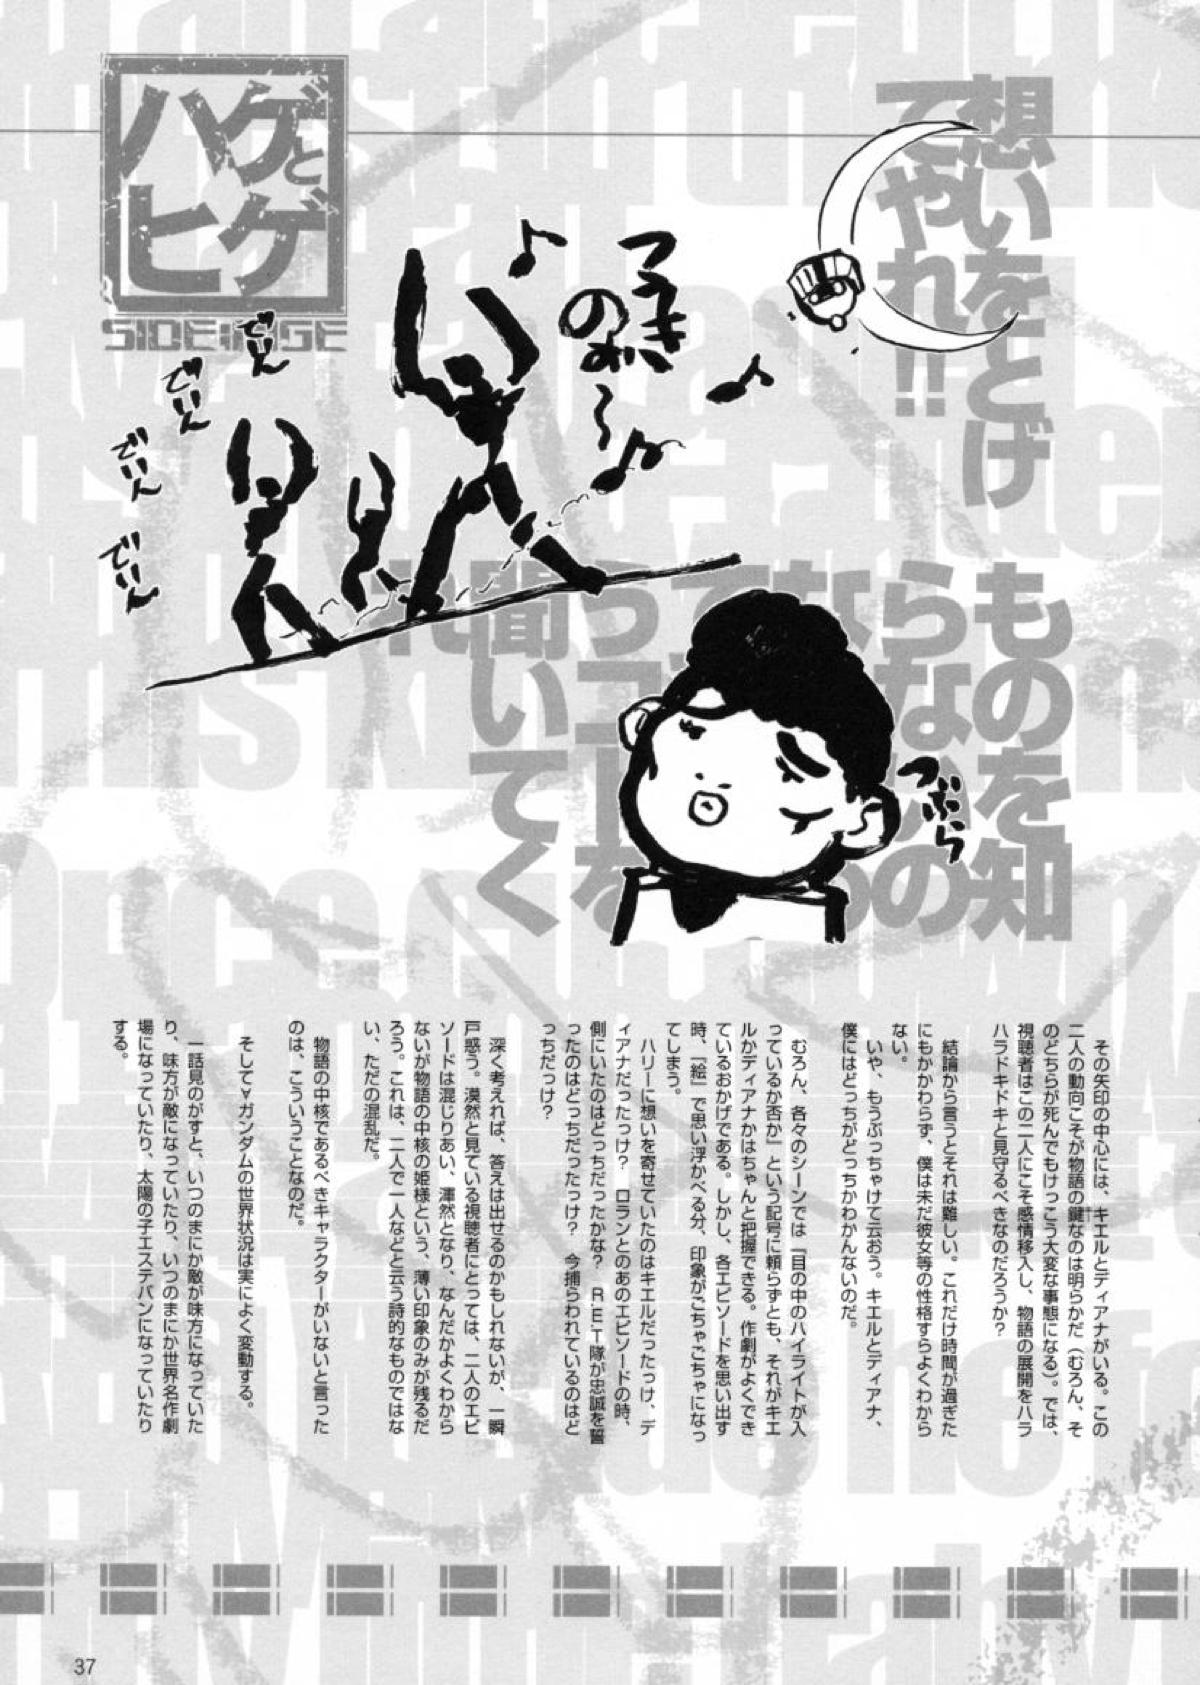 ハゲと
ヒゲ
SIDE:HIGE
想いをとげ
てやれ!!
つきの
の
でいん
でいん
でいん
でいん
ものを知
らない
聞いてく
つぶら
その矢印の中心には、キエルとディアナがいる。この
二人の動向こそが物語の鍵なのは明らかだ（むろん、そ
のどちらが死んでもけっこう大変な事態になる）。では、
視聴者はこの二人にこそ感情移入し、物語の展開をハラ
ハラドキドキと見守るべきなのだろうか？
結論から言うとそれは難しい。これだけ時間が過ぎた
にもかかわらず、僕は未だ彼女等の性格すらよくわから
ない。
いや、もうぶっちゃけて云おう。キエルとディアナ、
僕にはどっちがどっちかわかんないのだ。
むろん、各々のシーンでは『目の中のハイライトが入
っているか否か』という記号に頼らずとも、それがキエ
ルかディアナかはちゃんと把握できる。作劇がよくでき
ているおかげである。しかし、各エピソードを思い出す
時、『絵』で思い浮かべる分、印象がごちゃごちゃになっ
てしまう。
ハリーに想いを寄せていたのはキエルだったっけ、デ
ィアナだったっけ？　ロランとのあのエピソードの時、
側にいたのはどっちだったかな？　ＲＥＴ隊が忠誠を誓
ったのはどっちだったっけ？　今捕らわれているのはど
っちだっけ？
深く考えれば、答えは出せるのかもしれないが、一瞬
戸惑う。漠然と見ている視聴者にとっては、二人のエピ
ソードは混じりあい、渾然となり、なんだかよくわから
ないが物語の中核の姫様という、薄い印象のみが残るだ
ろう。これは、二人で一人などと云う詩的なものではな
い、ただの混乱だ。
物語の中核であるべきキャラクターがいないと言った
のは、こういうことなのだ。
そして∀ガンダムの世界状況は実によく変動する。
一話見のがすと、いつのまにか敵が味方になっていた
り、味方が敵になっていたり、いつのまにか世界名作劇
場になっていたり、太陽の子エステバンになっていたり
する。
37